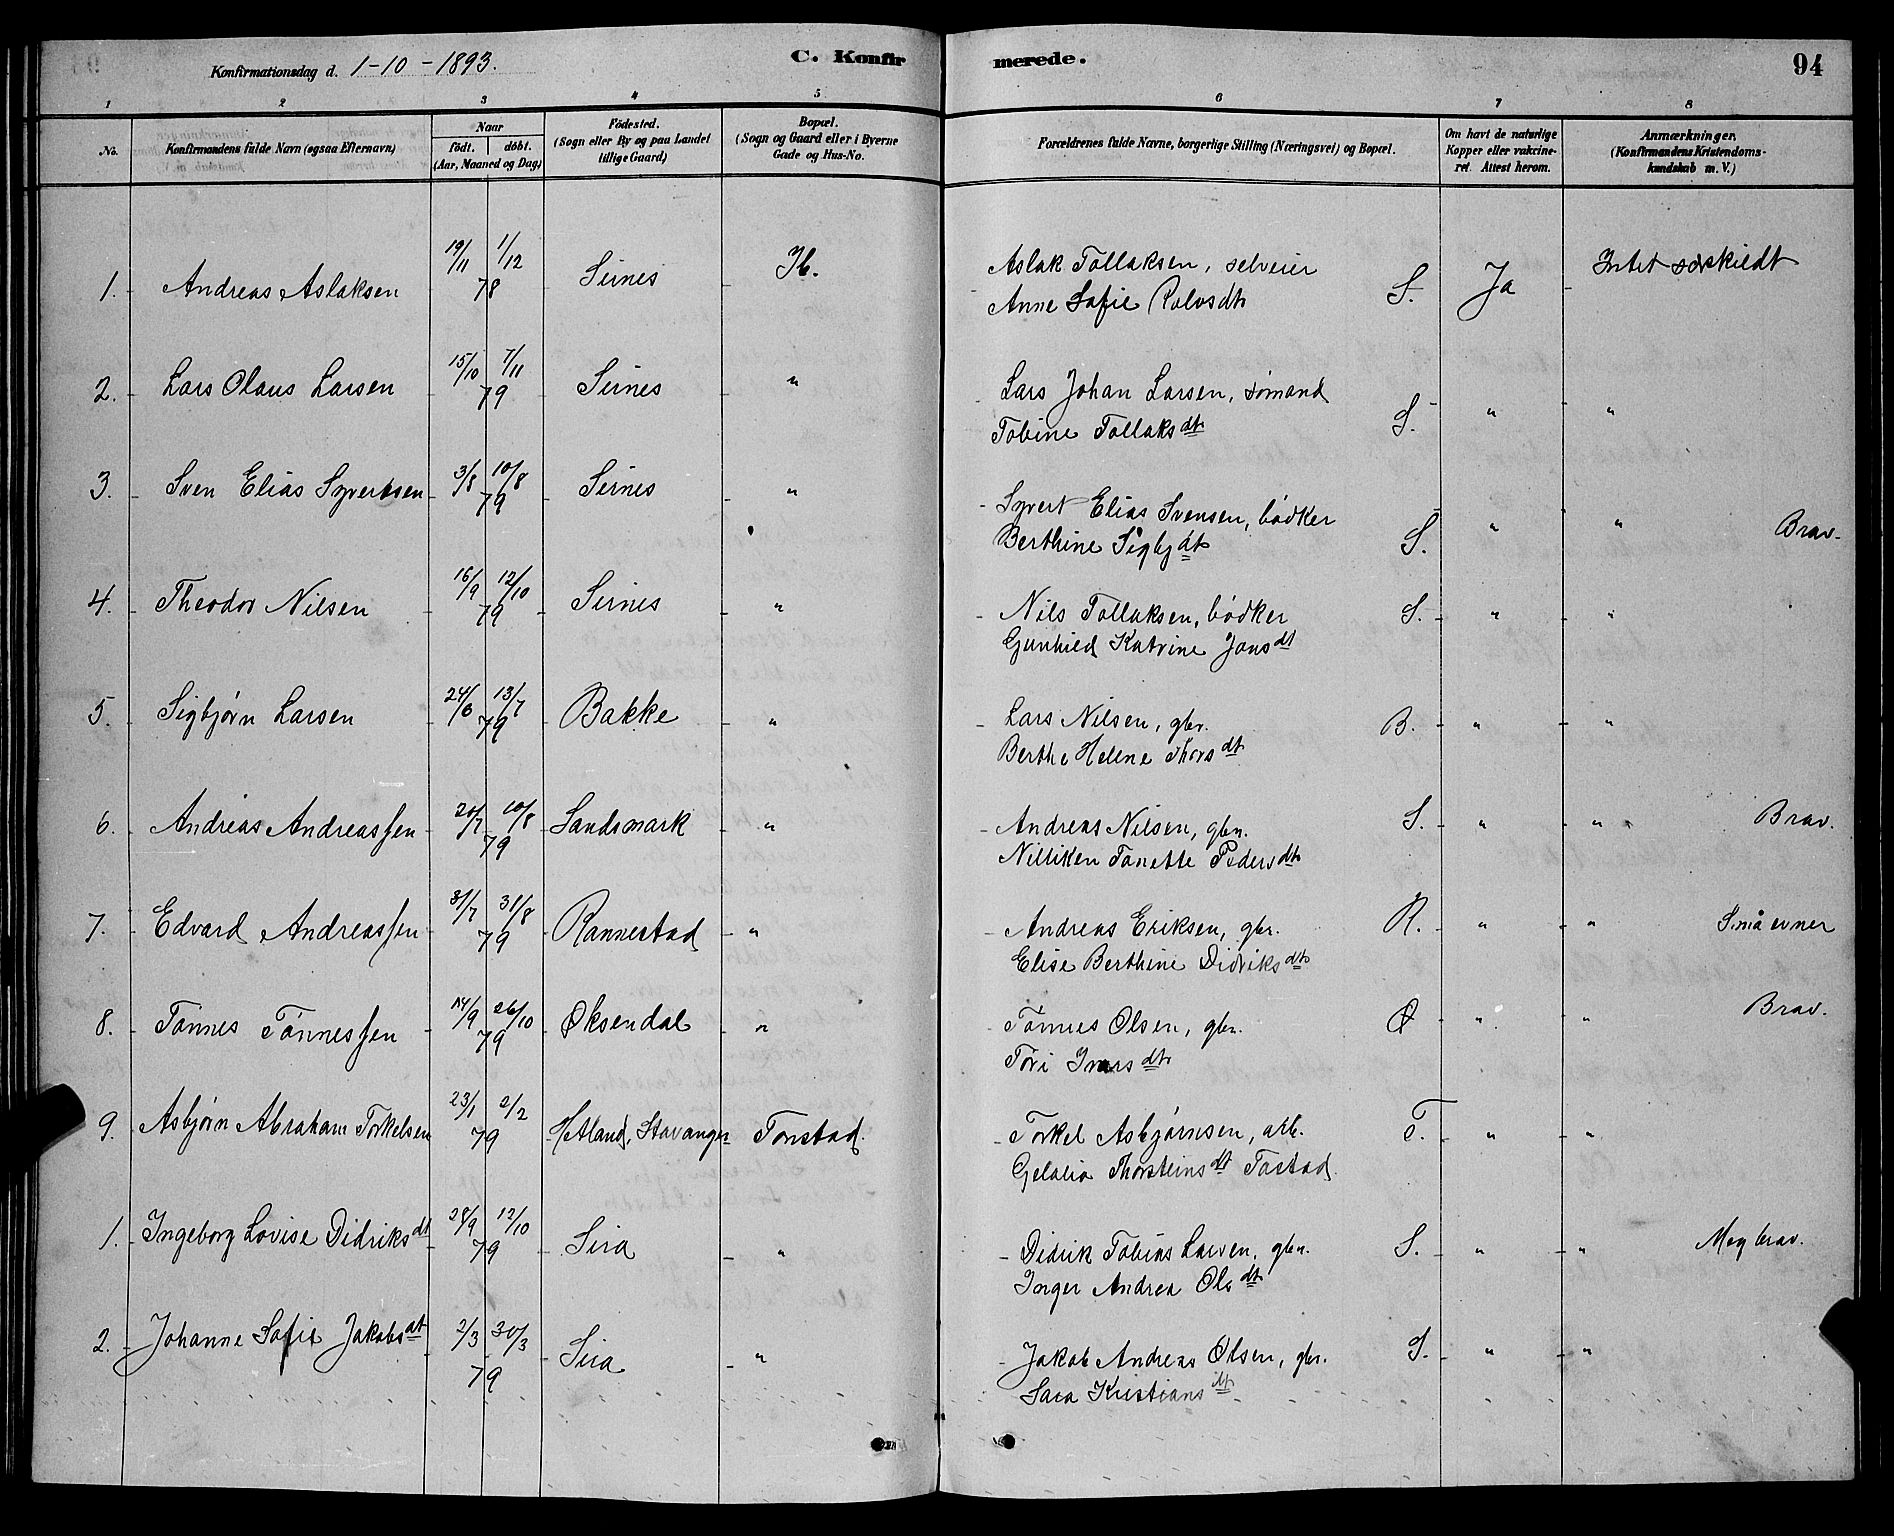 Konfirmationsdag d. 1-10-1893.
C. Konfirmerede.
94
1 2 3 4 5 6 7 8
No.
Konfirmandens fulde Navn (ogsaa Efternavn)
Naar
født. døbt.
(Aar, Maaned og Dag)
Fødested.
(Sogn eller By og paa Landet
tillige Gaard)
Bopæl.
(Sogn og Gaard eller i Byerne
Gade og Hus-No.
Forældrenes fulde Navne, borgerlige Stilling (Næringsvei) og Bopæl.
Om havt de naturlige
Kopper eller vakcine-
ret. Attest herom.
Anmærkninger.
(Konfirmandens Kristendoms-
kundskab m. V.)
1. Andreas Aslaksen 19/11 1/12 78 Sirnes Ib. Aslak Tollaksen, selveier
Anne Sofie Rolvsdt S. Ja Intet særskildt
2. Lars Claus Larsen 15/10 7/11 79 Sirnes " Lars Johan Larsen, sømand
Tobine Tollaksdt S. " "
3. Sven Elias Syvertsen 3/8 10/8 79 Sirnes " Syvert Elias Svensen, bødker
Berthine Sigbjdt S. " " Brav.
4. Theodor Nilsen 16/9 12/10 79 Sirnes " Nils Tollaksen, bødker S. " "
Gunhild Katrine Jonsdt
5. Sigbjørn Larsen 24/6 13/7 79 Bakke " Lars Nilsen, gbr. B. " "
Berthe Helene Thorsdt
6. Andreas Andreassen 20/7 10/8 79 Sandsmark " Andreas Nilsen, gbr. S. " " Brav.
Nilliken Tanette Pedersdt
7. Edvard Andreassen 31/7 31/8 79 Rannestad " Andreas Eriksen, gbr. R. " " Små evner
Elise Berthine Didriksdt
8. Tønnes Tønnessen 14/9 26/10 79 Øksendal " Tønnes Olsen, gbr. Ø " " Brav.
Tori Ivarsdt
9. Asbjørn Abraham Torkelsen 23/1 2/2 79 Hetland, Stavanger Tonstad. Torkel Asbjørnsen, arb. T. " "
Thorsteinsdt Tastad.
1. Ingeborg Lovise Didriksdt 28/9 12/10 79 Sira " Didrik Tobias Larsen, gbr. S. " " Meg brav.
Inger Andrea Olsdt
2. Johanne Sofie Jakobsdt 2/3 30/3 79 Sira " Jakob Andreas Olsen, gbr. S. " "
Sara Kristiansdt